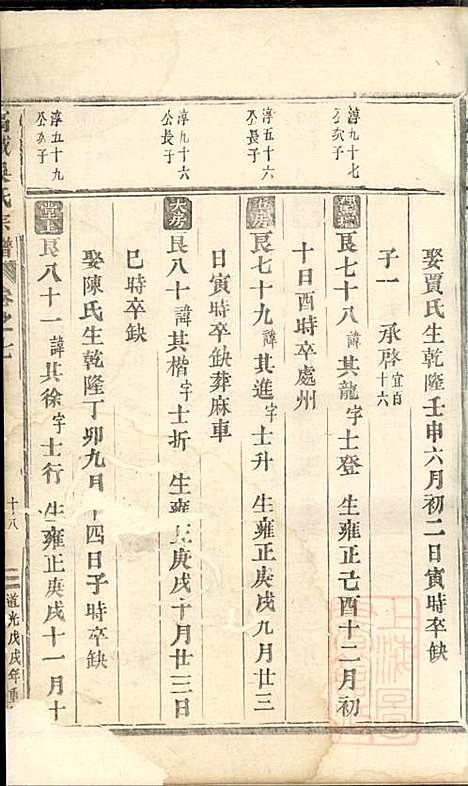 娶賈氏生乾隆壬申六月初二日寅時卒缺
子一 承啓宜百十六
淳九十七
公次子
艮七十八諱其龍字士登 生雍正己酉十二月初
十日酉時卒處州
淳五十六
公長子
艮七十九諱其進字士升 生雍正庚戌九月廿三
日寅時卒缺葬麻車
淳九十六
公長子
大房
艮八十諱其楷字士折 生雍正庚戌十月廿三日
巳時卒缺
娶陳氏生乾隆丁卯九月十四日子時卒缺
淳五十九
公次子
艮八十一諱其徐字士行 生雍正庚戌十一月十
氏宗譜 卷之七 十八 道光戊戌年重